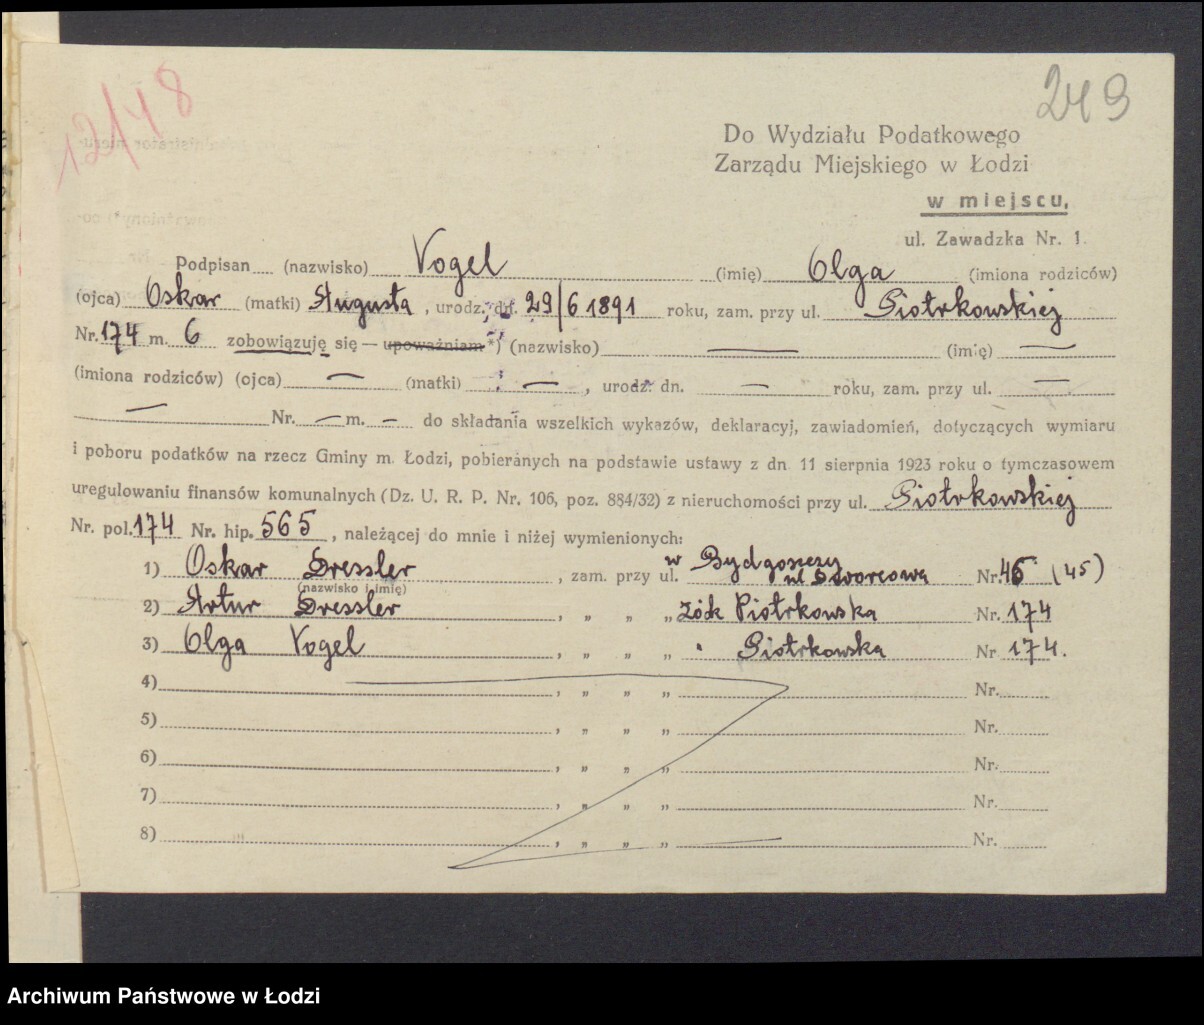 12/48
249
Do Wydziału Podatkowego
Zarządu Miejskiego w Łodzi
w miejscu,
ul. Zawadzka Nr. 1.
Podpisan (nazwisko) Vogel (imię) Olga (imiona rodziców)
(ojca) Oskar (matki) Augusta, urodz. dn. 29/6 1891 roku, zam. przy ul. Piotrkowskiej
Nr. 174 m. 6 zobowiązuję się — upoważniam *) (nazwisko) — (imię) —
(imiona rodziców) (ojca) — (matki) —, urodz. dn. — roku, zam. przy ul. —
— Nr. — m. — do składania wszelkich wykazów, deklaracyj, zawiadomień, dotyczących wymiaru
i poboru podatków na rzecz Gminy m. Łodzi, pobieranych na podstawie ustawy z dn. 11 sierpnia 1923 roku o tymczasowem
uregulowaniu finansów komunalnych (Dz. U. R. P. Nr. 106, poz. 884/32) z nieruchomości przy ul. Piotrkowskiej
Nr. pol. 174 Nr. hip. 565, należącej do mnie i niżej wymienionych:
1) Oskar Dressler, zam. przy ul. w Bydgoszczy ul Dworcowa Nr. 45 (45)
(nazwisko i imię)
2) Artur Dressler, „ „ „ Łódź Piotrkowska Nr. 174
3) Olga Vogel, „ „ „ " Piotrkowska Nr 174.
4) , „ „ „ Nr.
5) , „ „ „ Nr.
6) , „ „ „ Nr.
7) , „ „ „ Nr.
8) , „ „ „ Nr.
Archiwum Państwowe w Łodzi